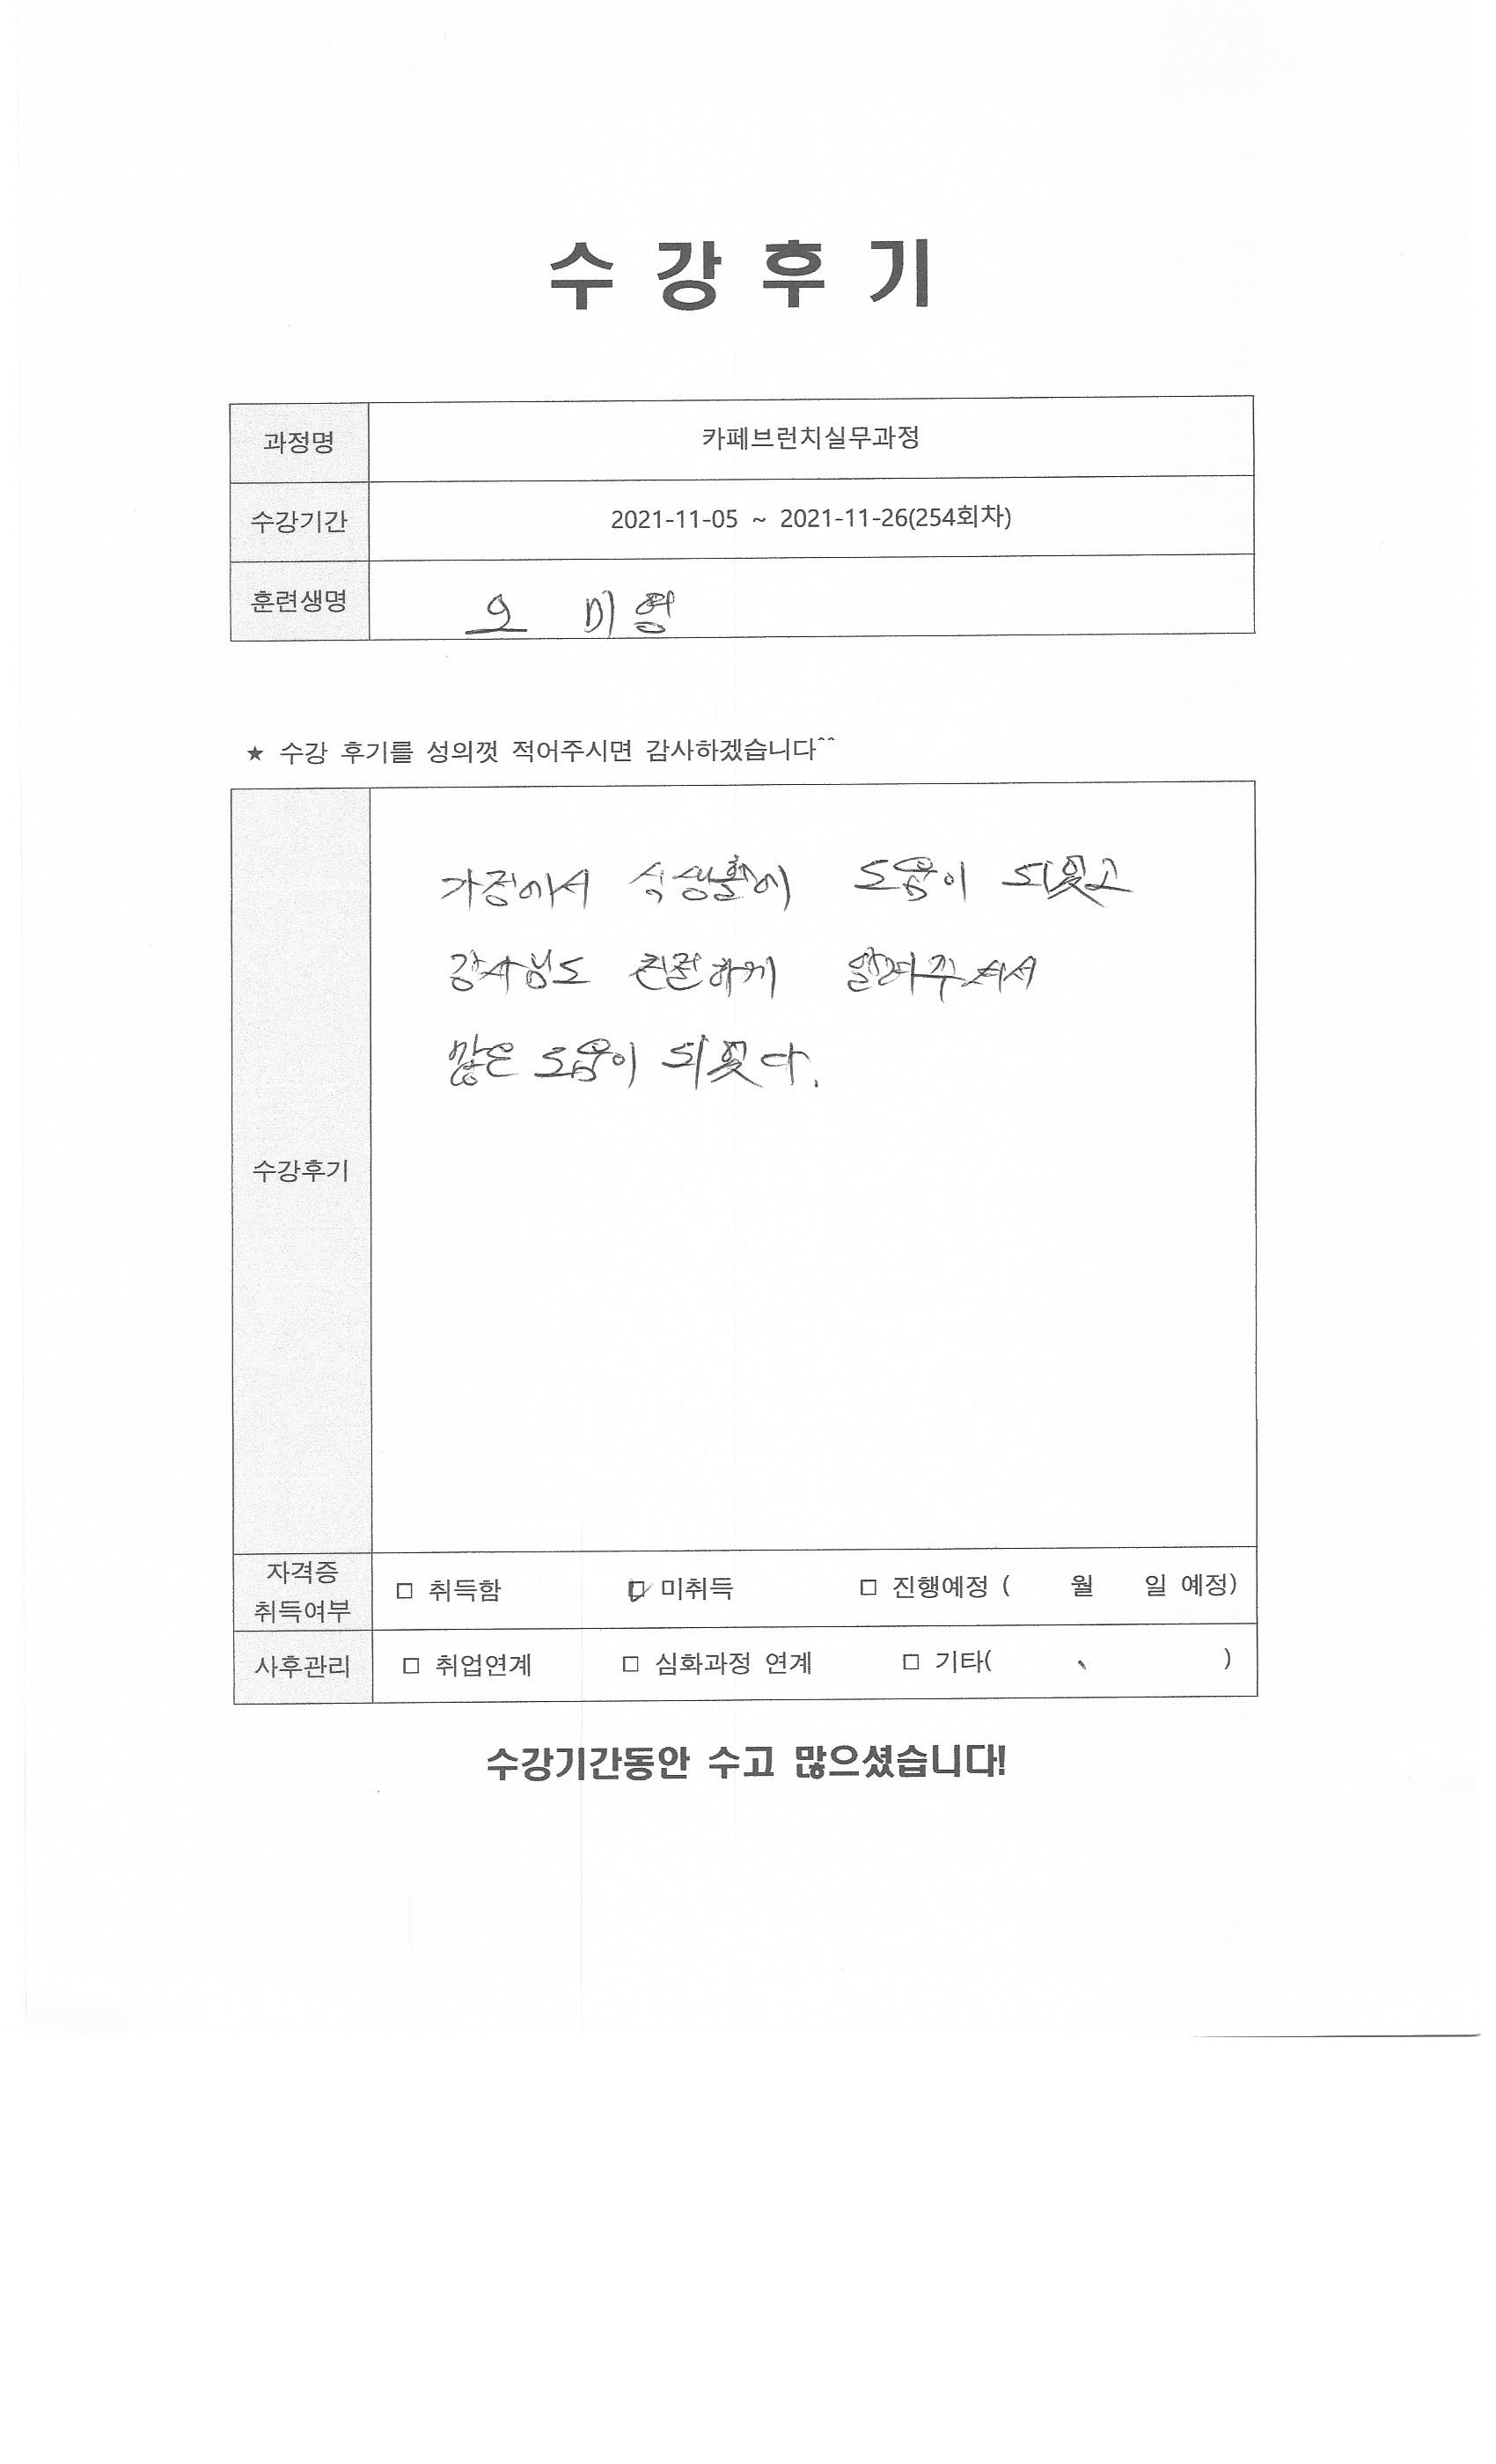 수 강 후 기
과정명 카페브런치실무과정
수강기간 2021-11-05 ~ 2021-11-26(254회차)
훈련생명 오 미영
★ 수강 후기를 성의껏 적어주시면 감사하겠습니다^^
가정에서 식생활에 도움이 되욧고
강사님도 친절하게 알려주셔서
많은 도움이 되욧다.
수강후기
자격증
취득여부
□ 취득함 ☑ 미취득 □ 진행예정 ( 월 일 예정)
사후관리 □ 취업연계 □ 심화과정 연계 □ 기타( )
수강기간동안 수고 많으셨습니다!